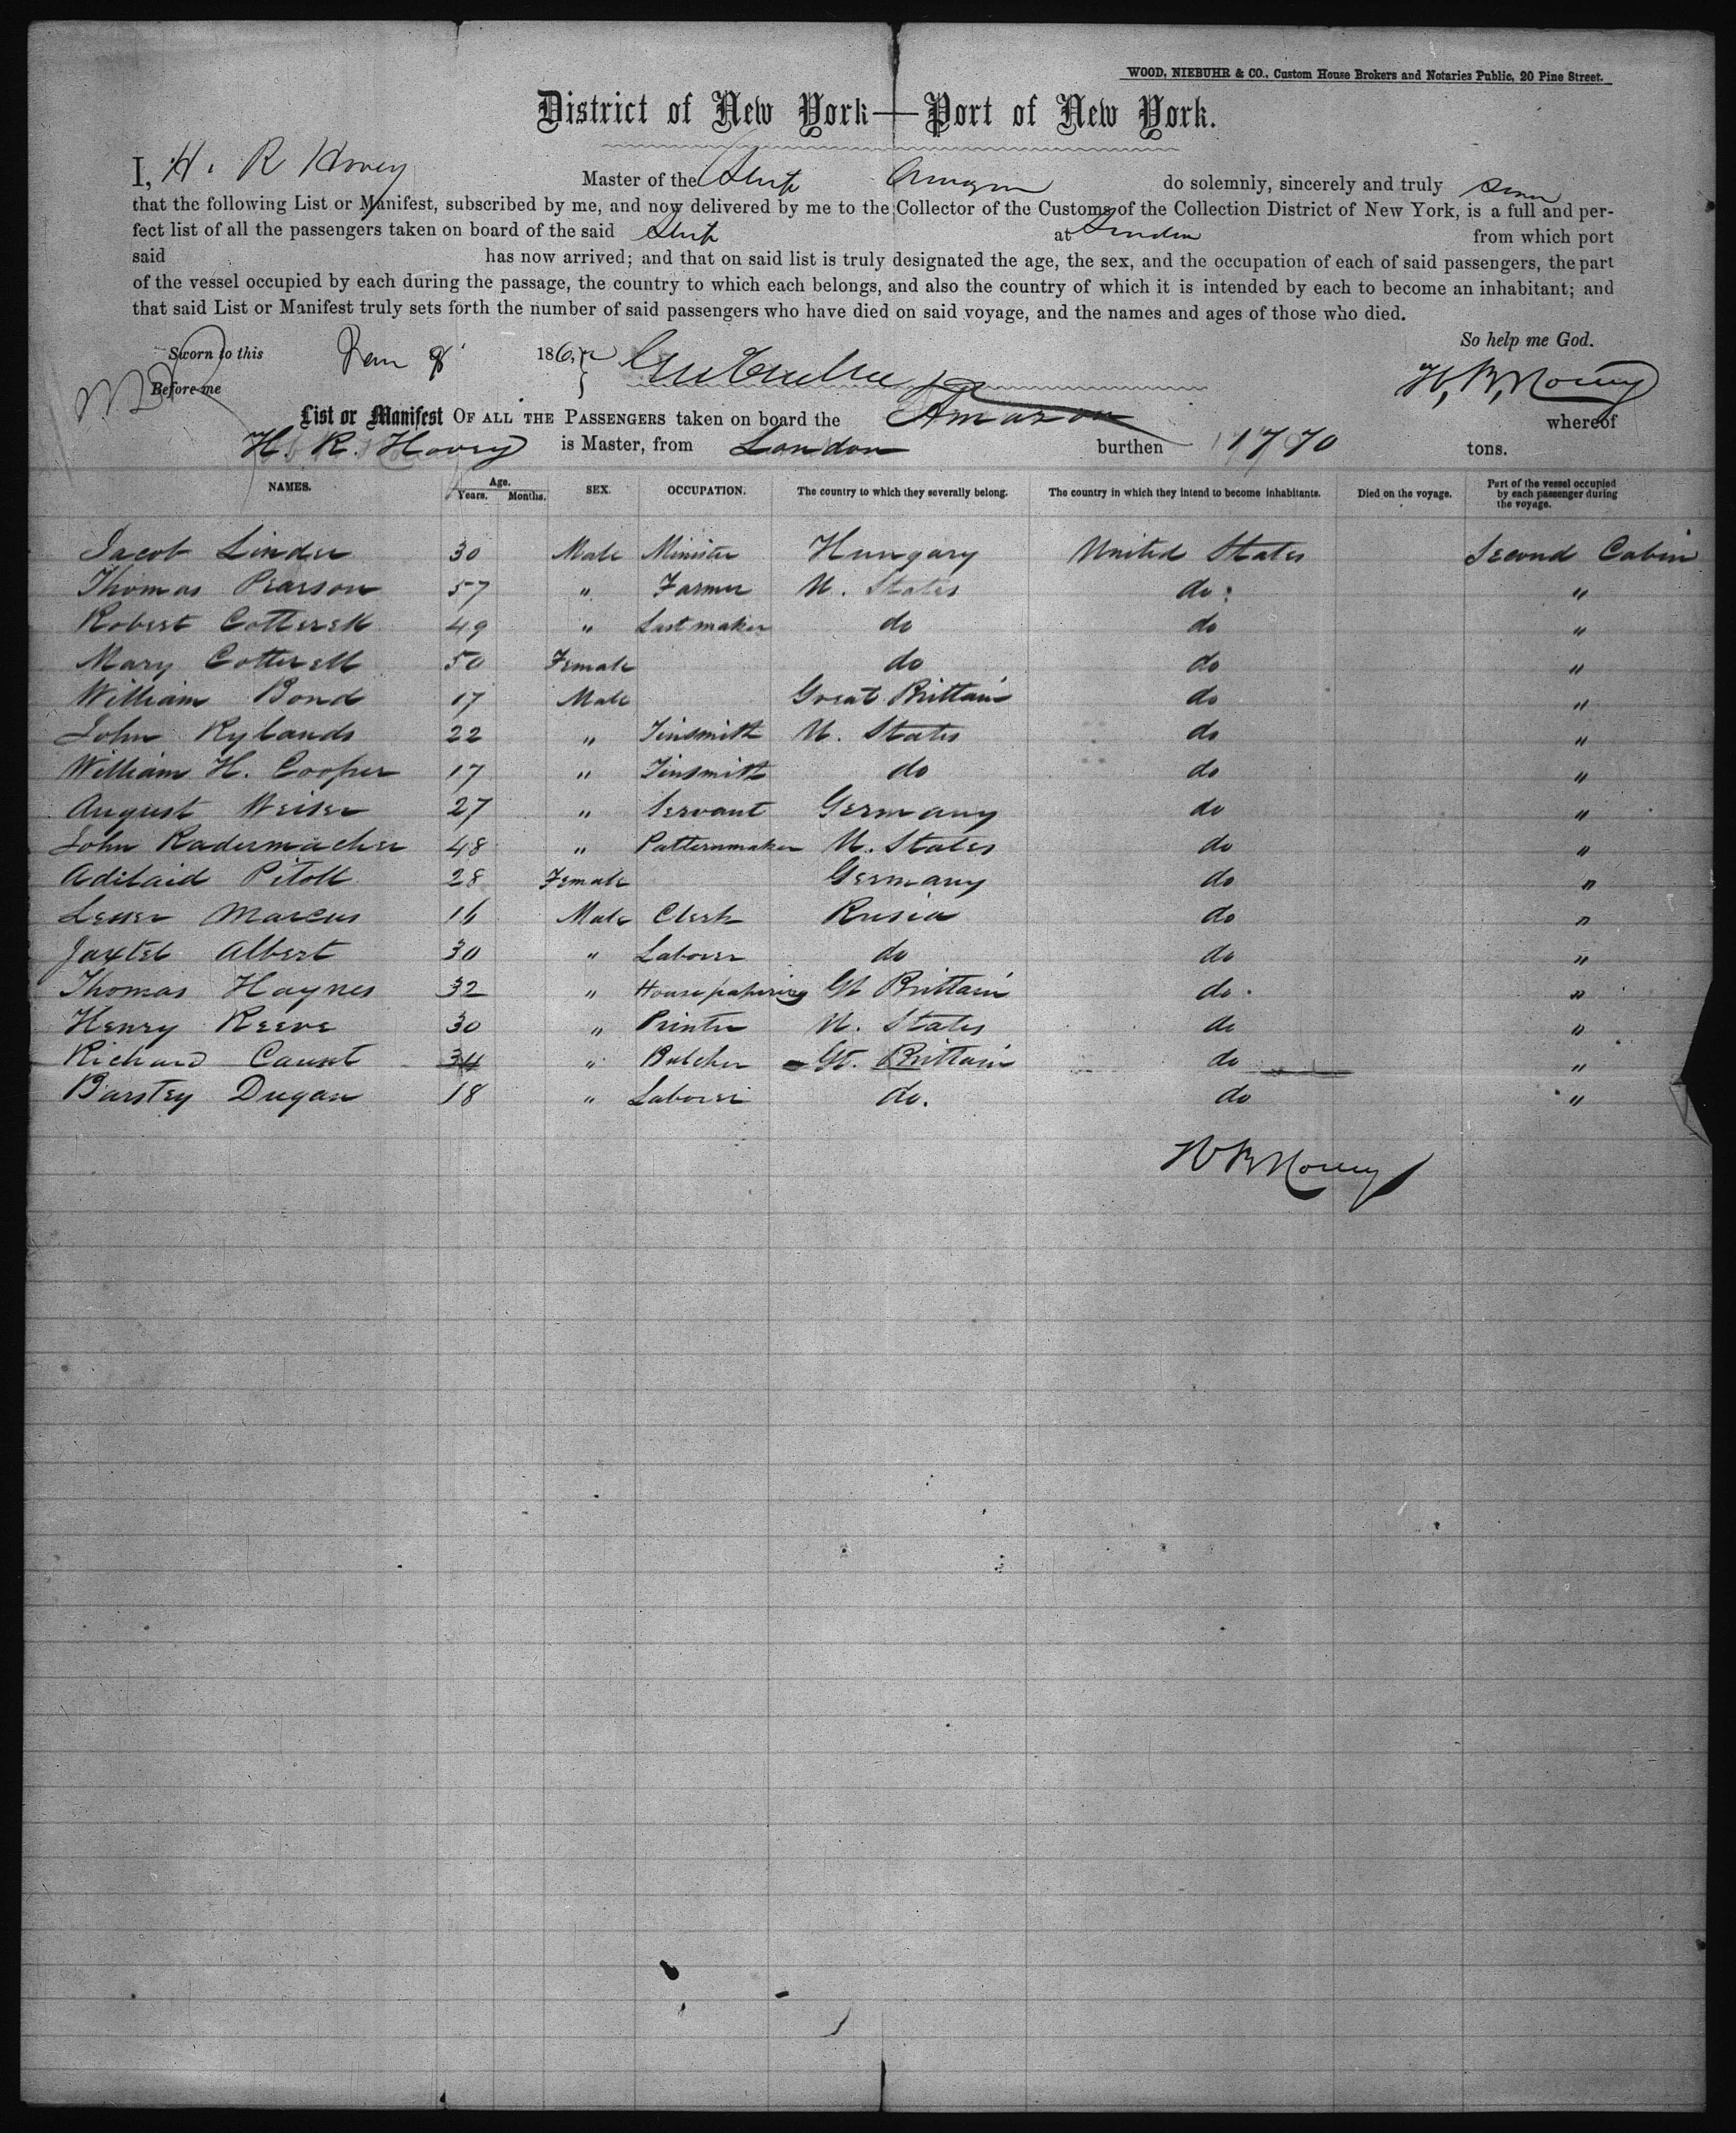 WOOD, NIEBUHR & CO., Custom House Brokers and Notaries Public, 20 Pine Street.
District of New York—Port of New York.
I, H. R Hovey Master of the Ship Amazon do solemnly, sincerely and truly
that the following List or Manifest, subscribed by me, and now delivered by me to the Collector of the Customs of the Collection District of New York, is a full and per-
fect list of all the passengers taken on board of the said Ship at London from which port
said has now arrived; and that on said list is truly designated the age, the sex, and the occupation of each of said passengers, the part
of the vessel occupied by each during the passage, the country to which each belongs, and also the country of which it is intended by each to become an inhabitant; and
that said List or Manifest truly sets forth the number of said passengers who have died on said voyage, and the names and ages of those who died.
So help me God.
Sworn to this Jan 8 186
Before me
List or Manifest OF ALL THE PASSENGERS taken on board the Amazon whereof
H. R. Hovey is Master, from London burthen 1770 tons.
NAMES. Age. Years. Months. SEX. OCCUPATION. The country to which they severally belong. The country in which they intend to become inhabitants. Died on the voyage. Part of the vessel occupied by each passenger during the voyage.
Jacob Linder 30 Male Minister Hungary United States Second Cabin
Thomas Pearson 57 " Farmer U. States do "
Robert Cotterell 49 " Last maker do do "
Mary Cotterell 50 Female do do "
William Bond 17 Male Great Brittain do "
John Rylands 22 " Tinsmith U. States do "
William H. Cooper 17 " Tinsmith do do "
August Weiser 27 " Servant Germany do "
John Radermacher 48 " Patternmaker U. States do "
Adilaid Pitoll 28 Female Germany do "
Lesser Marcus 16 Male Clerk Rusia do "
Jaxtel Albert 30 " Laborer do do "
Thomas Haynes 32 " House papering Gt Brittain do "
Henry Reeve 30 " Printer U. States do "
Richard Caunt 34 " Butcher Gt. Brittain do "
Barstey Dugan 18 " Laborer do. do "